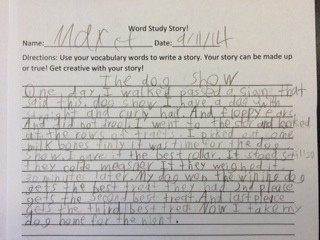 Word Study Story!
Name: Date: 9/11/14
Directions: Use your vocabulary words to write a story. Your story can be made up
or true! Get creative with your story!
The dog show
One day I walked passed a sign that
said this. dog show I have a dog with
and curly hair. And floppy ears
And did not I went in the car and looked
at the row of treats. I picked out some
milk bones finly it was time for the dog
show. I gave it the best collar. It stood still so
they colde measher it they weighed it
minutes later. My dog won the wining dog
gets the best treat they had 2nd pleace
gets the second best treat. And last pleace
gets the third best treat. Now I take my
dog home for the night.